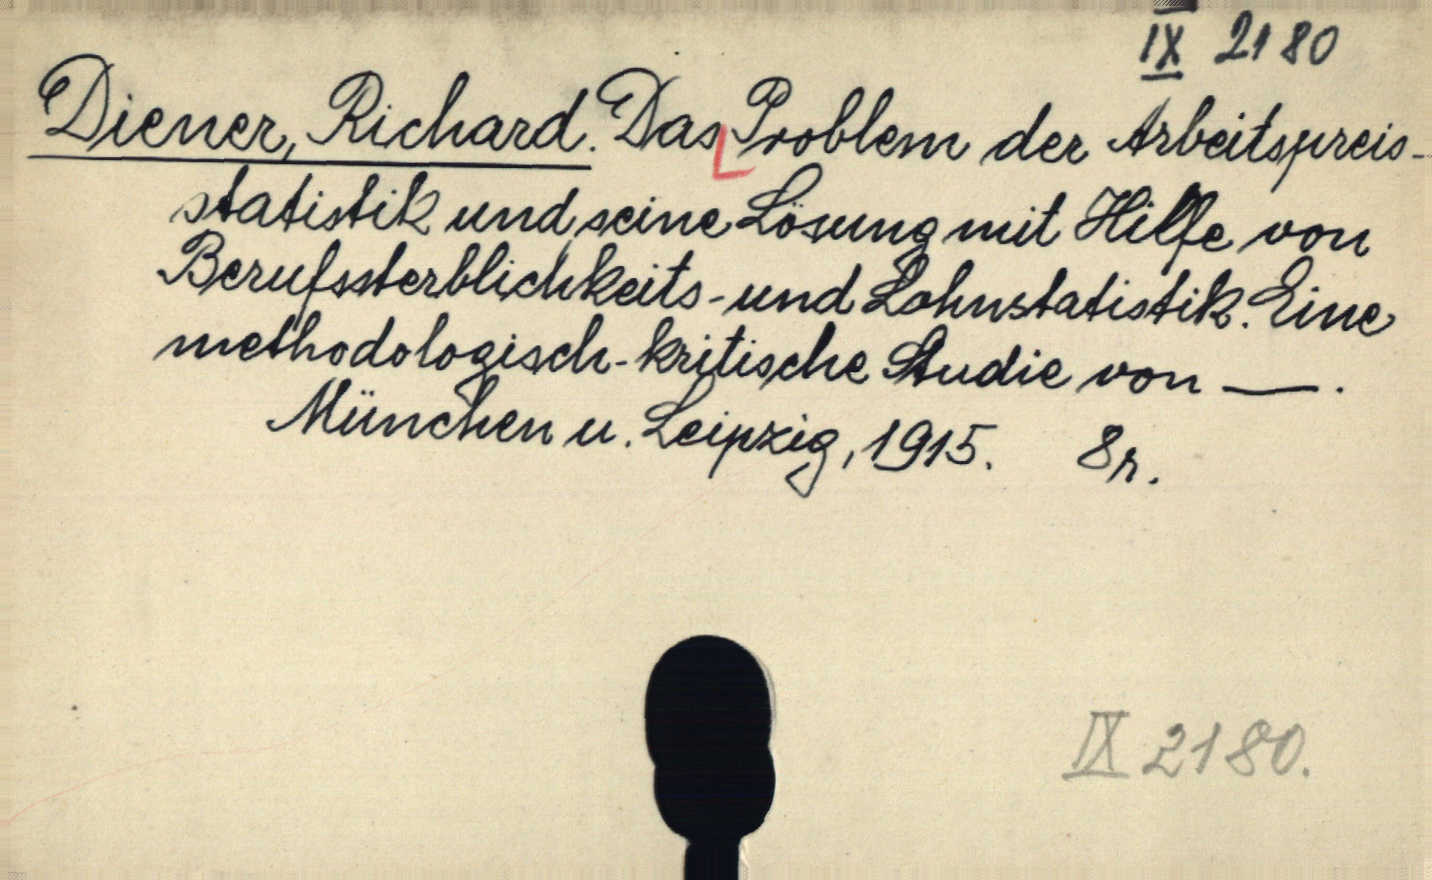 IX 2180
Diener, Richard. Das Problem der Arbeitspreis-
statistik und seine Lösung mit Hilfe von
Berufssterblichkeits- und Lohnstatistik. Eine
methodologisch-kritische Studie von —.
München u. Leipzig, 1915. 8r.
IX 2180.